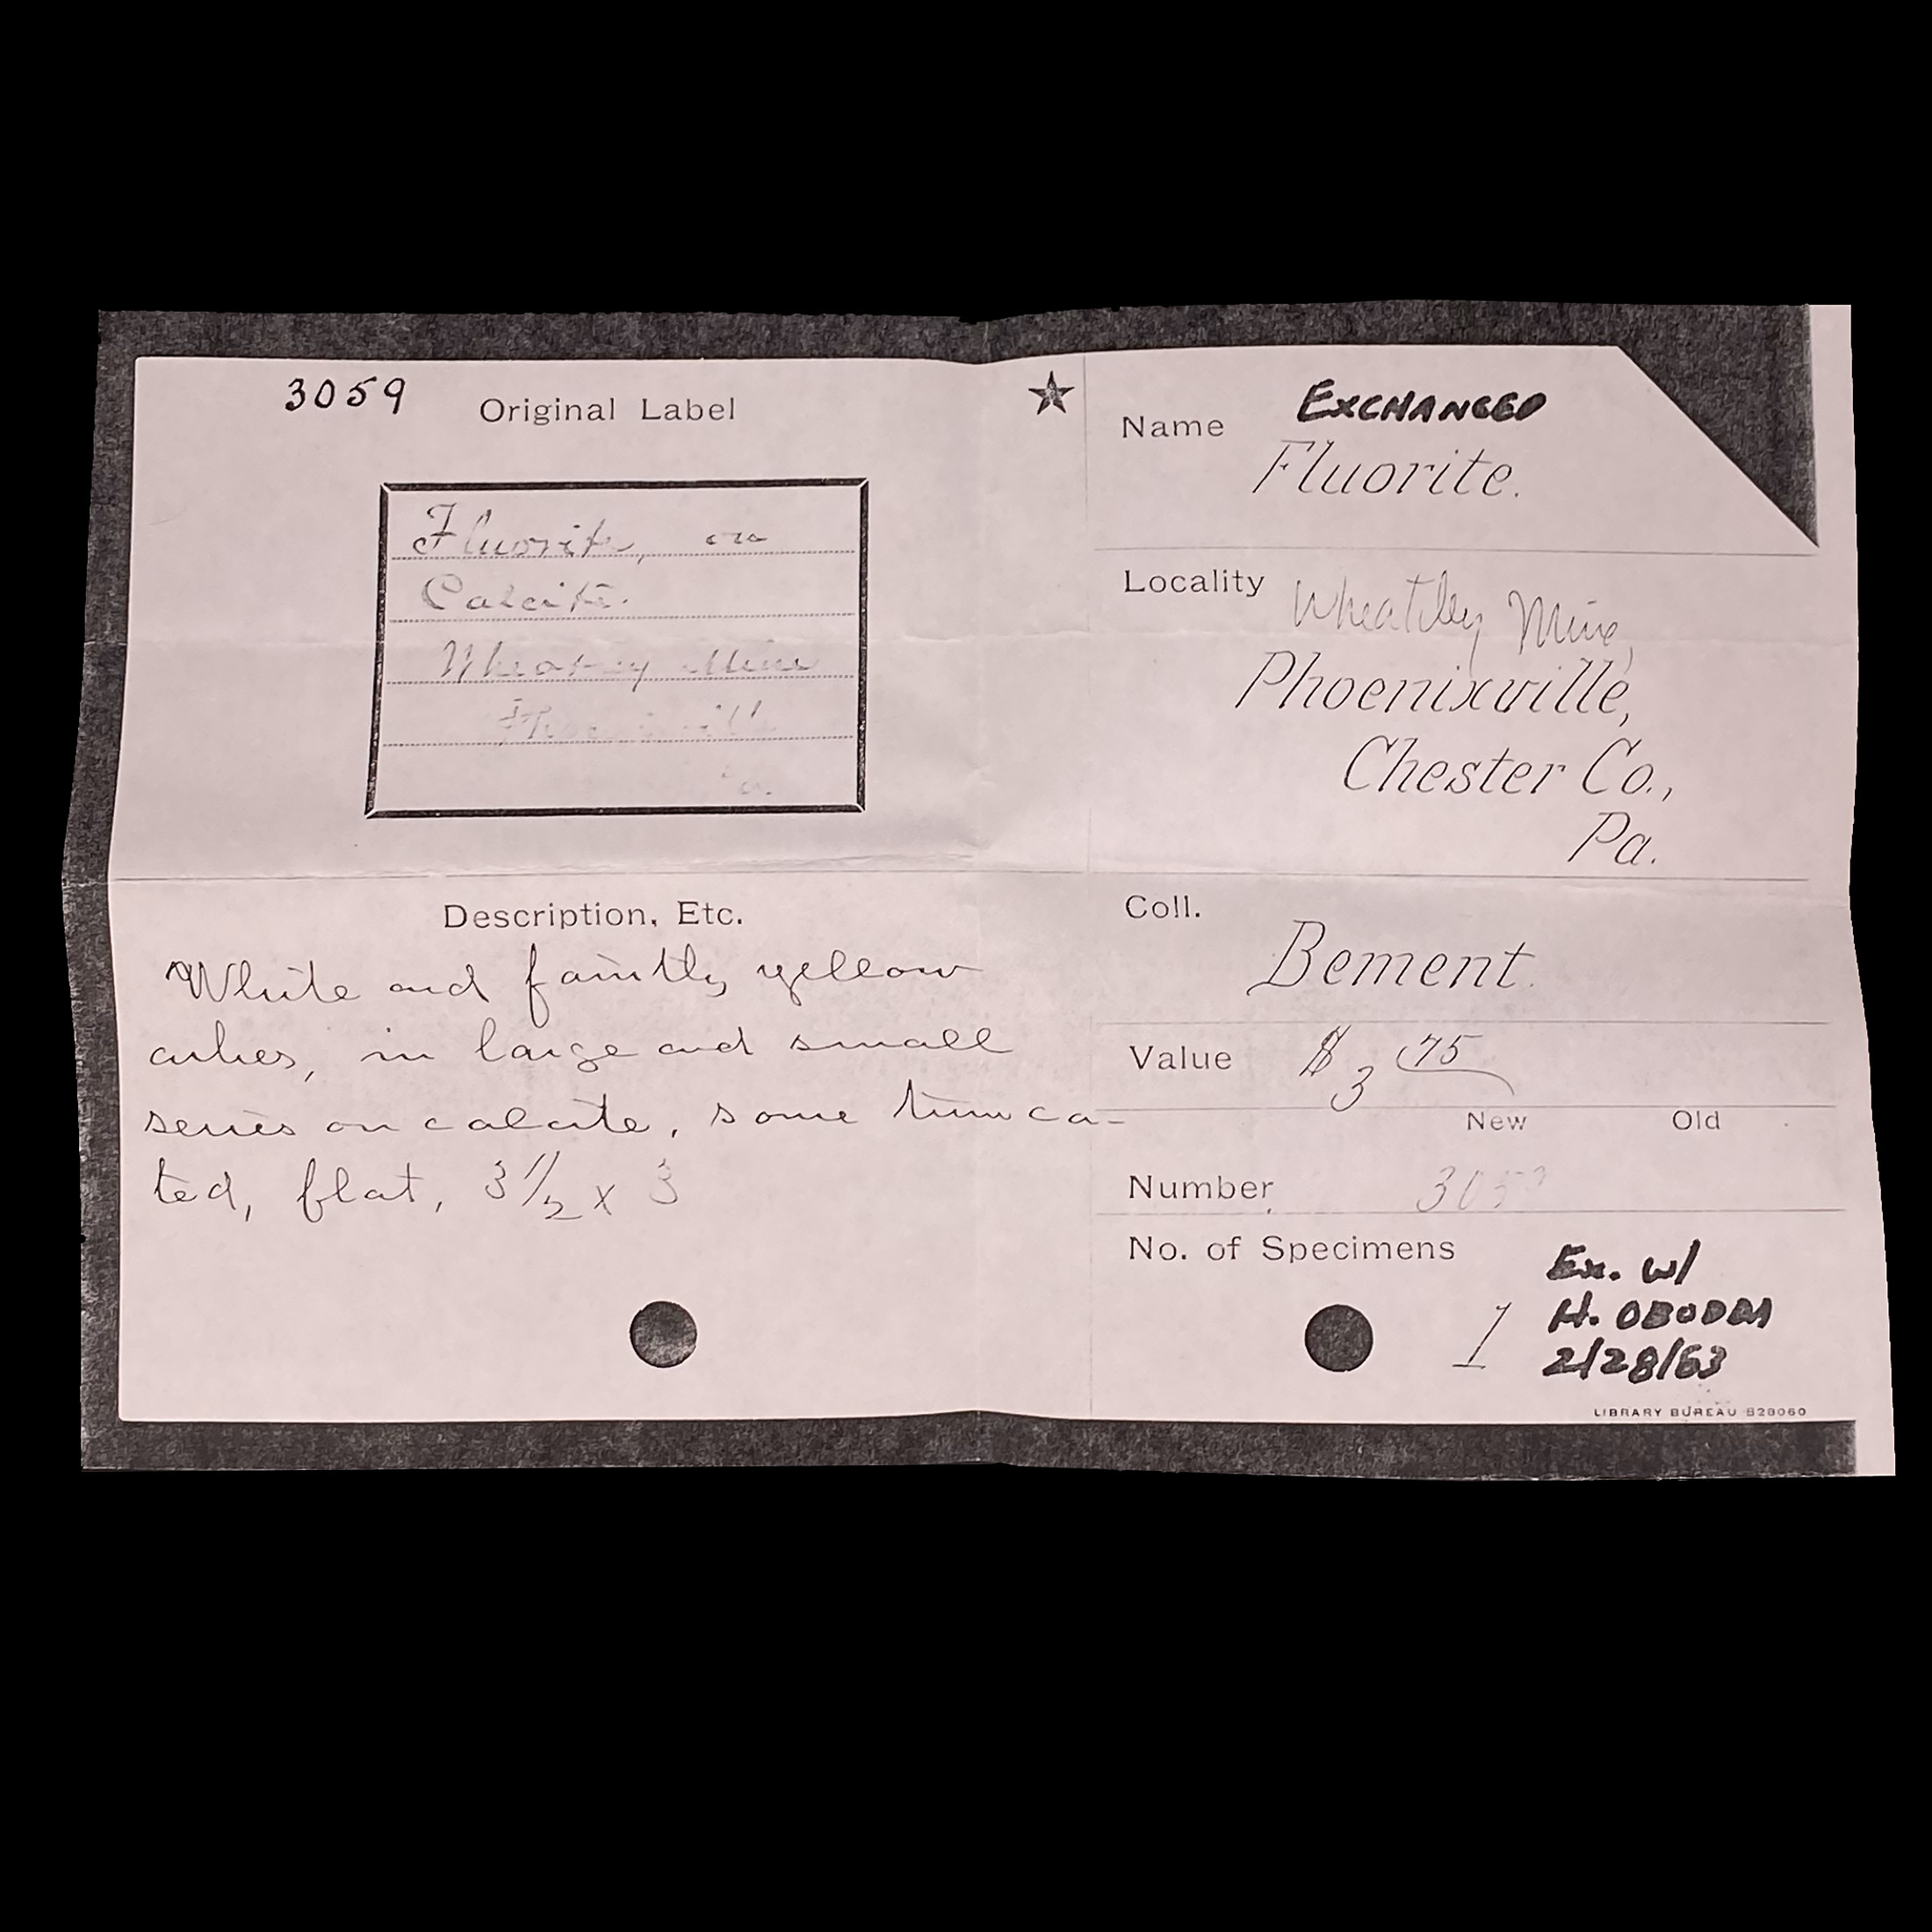 3059
Original Label
Fluorite, on
Calcite.
Wheatley Mine
Phoenixville
Description, Etc.
White and faintly yellow
cubes, in large and small
series on calcite, some trunca-
ted, flat, 3 1/2 x 3
EXCHANGED
Name
Fluorite.
Locality Wheatley Mine,
Phoenixville,
Chester Co.,
Pa.
Coll.
Bement.
Value $3 75
New Old
Number 3059
No. of Specimens
1
Ex. w/
H. OBODDA
2/28/63
LIBRARY BUREAU